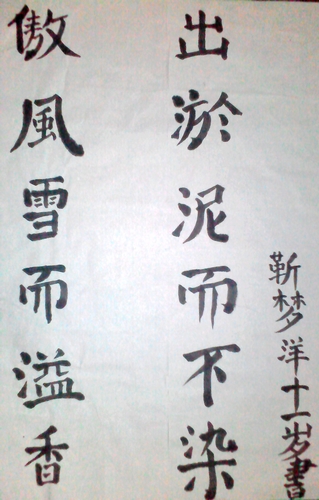 出淤泥而不染
傲風雪而溢香
靳梦洋十一岁書